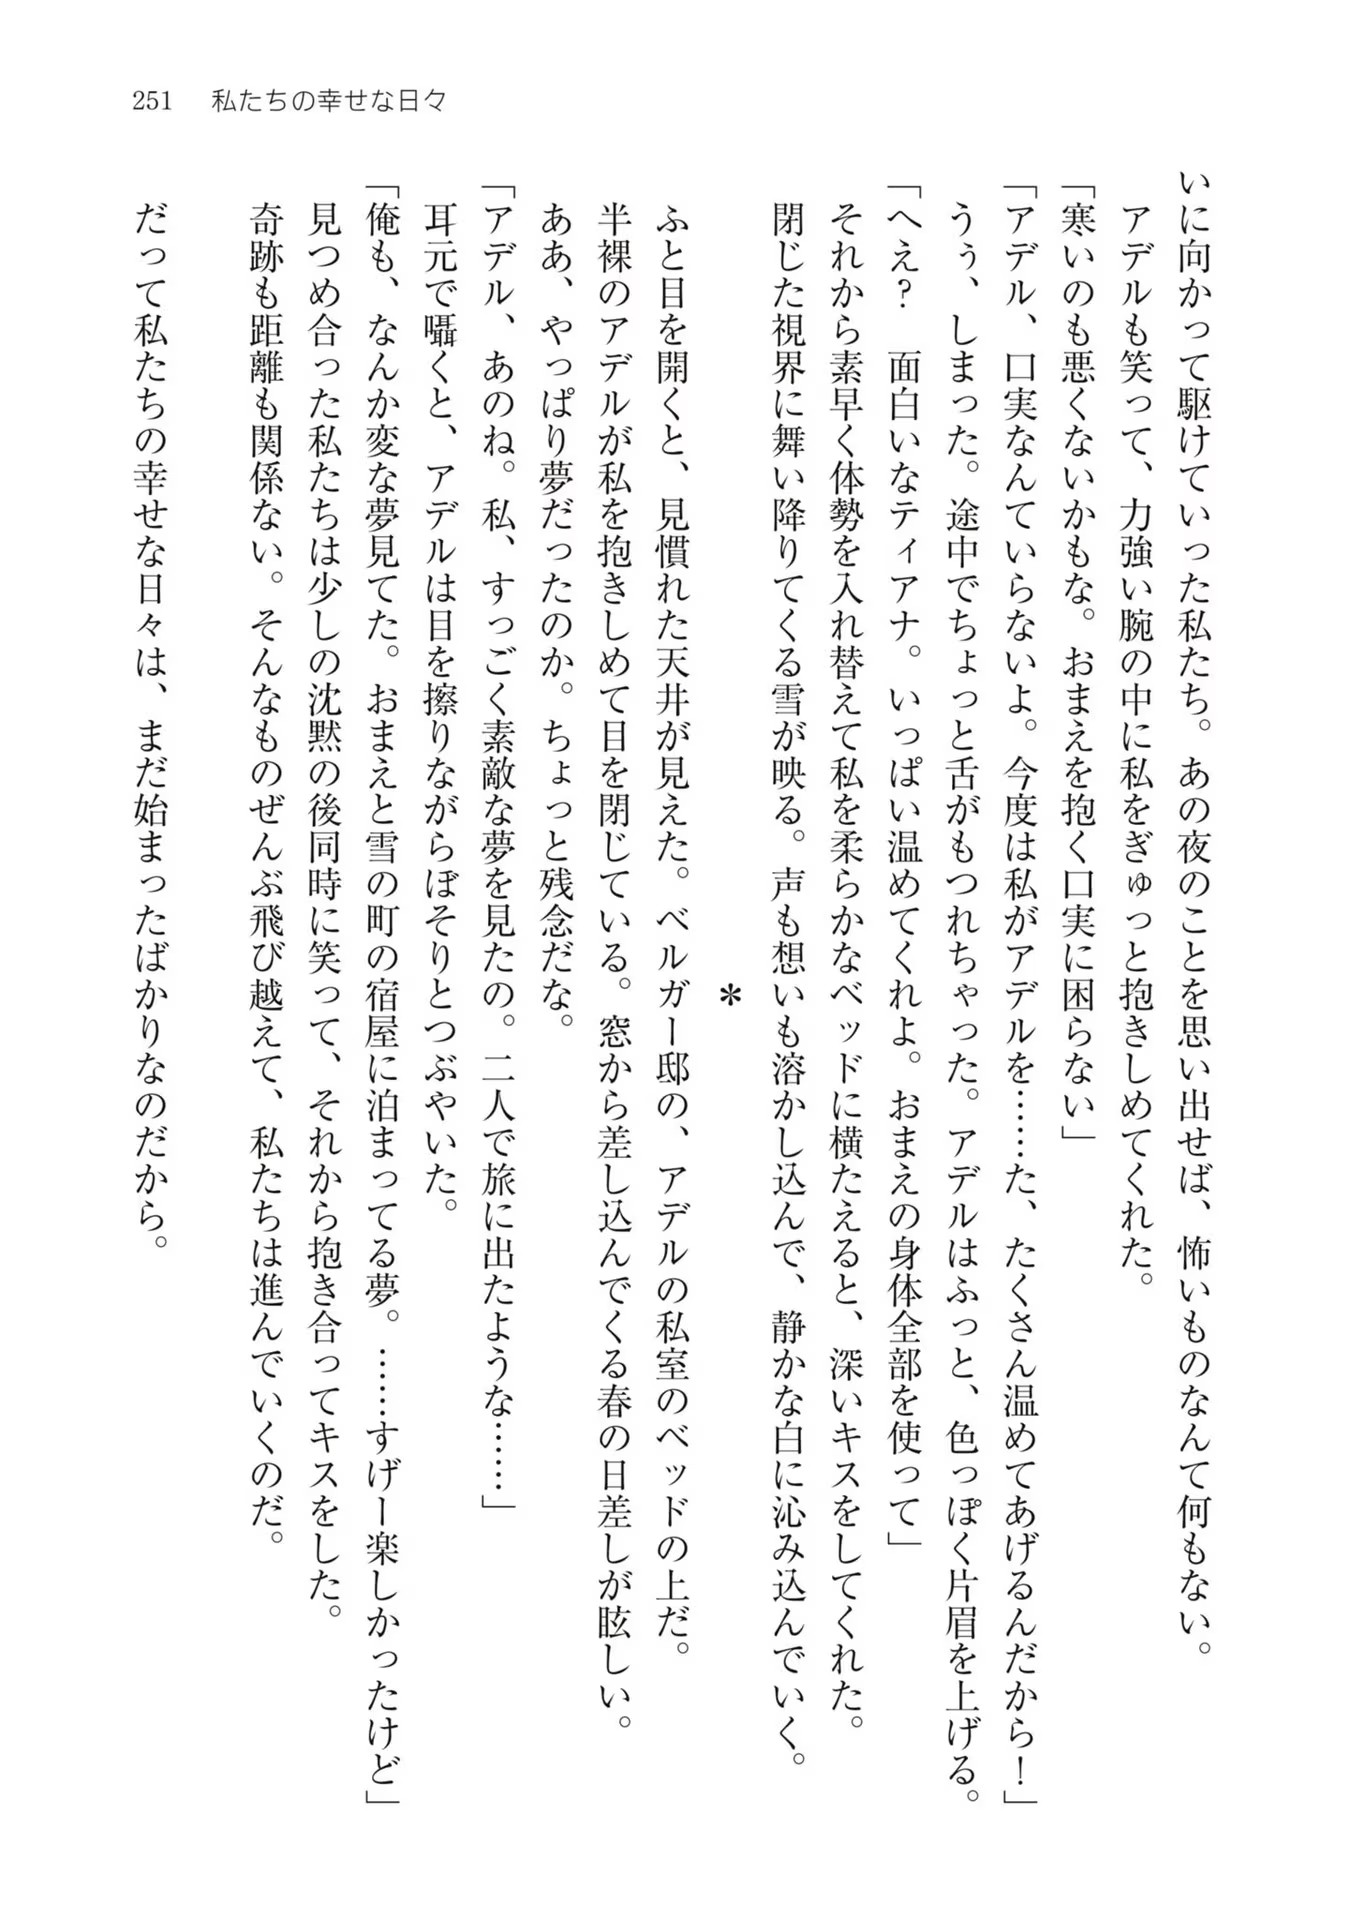 251　私たちの幸せな日々
いに向かって駆けていった私たち。あの夜のことを思い出せば、怖いものなんて何もない。
　アデルも笑って、力強い腕の中に私をぎゅっと抱きしめてくれた。
「寒いのも悪くないかもな。おまえを抱く口実に困らない」
「アデル、口実なんていらないよ。今度は私がアデルを……た、たくさん温めてあげるんだから！」
　うぅ、しまった。途中でちょっと舌がもつれちゃった。アデルはふっと、色っぽく片眉を上げる。
「へえ？　面白いなティアナ。いっぱい温めてくれよ。おまえの身体全部を使って」
　それから素早く体勢を入れ替えて私を柔らかなベッドに横たえると、深いキスをしてくれた。
　閉じた視界に舞い降りてくる雪が映る。声も想いも溶かし込んで、静かな白に沁み込んでいく。
＊
　ふと目を開くと、見慣れた天井が見えた。ベルガー邸の、アデルの私室のベッドの上だ。
　半裸のアデルが私を抱きしめて目を閉じている。窓から差し込んでくる春の日差しが眩しい。
　ああ、やっぱり夢だったのか。ちょっと残念だな。
「アデル、あのね。私、すっごく素敵な夢を見たの。二人で旅に出たような……」
　耳元で囁くと、アデルは目を擦りながらぼそりとつぶやいた。
「俺も、なんか変な夢見てた。おまえと雪の町の宿屋に泊まってる夢。……すげー楽しかったけど」
　見つめ合った私たちは少しの沈黙の後同時に笑って、それから抱き合ってキスをした。
　奇跡も距離も関係ない。そんなものぜんぶ飛び越えて、私たちは進んでいくのだ。
　だって私たちの幸せな日々は、まだ始まったばかりなのだから。